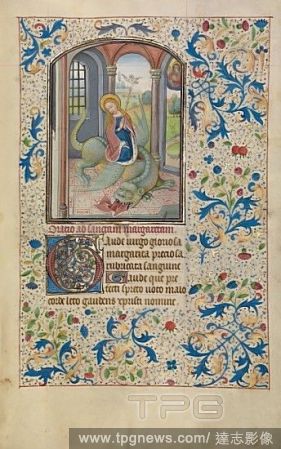 Oratio ad sanctam margaretam
Gaude virgo gloriosa
margarita preciosa
rubricata sanguine
Gaude que pre
fecti spiritu voto maio
corde leto gaudens xpristi nomine
TPG
www.tpgnews.com/ 達志影像